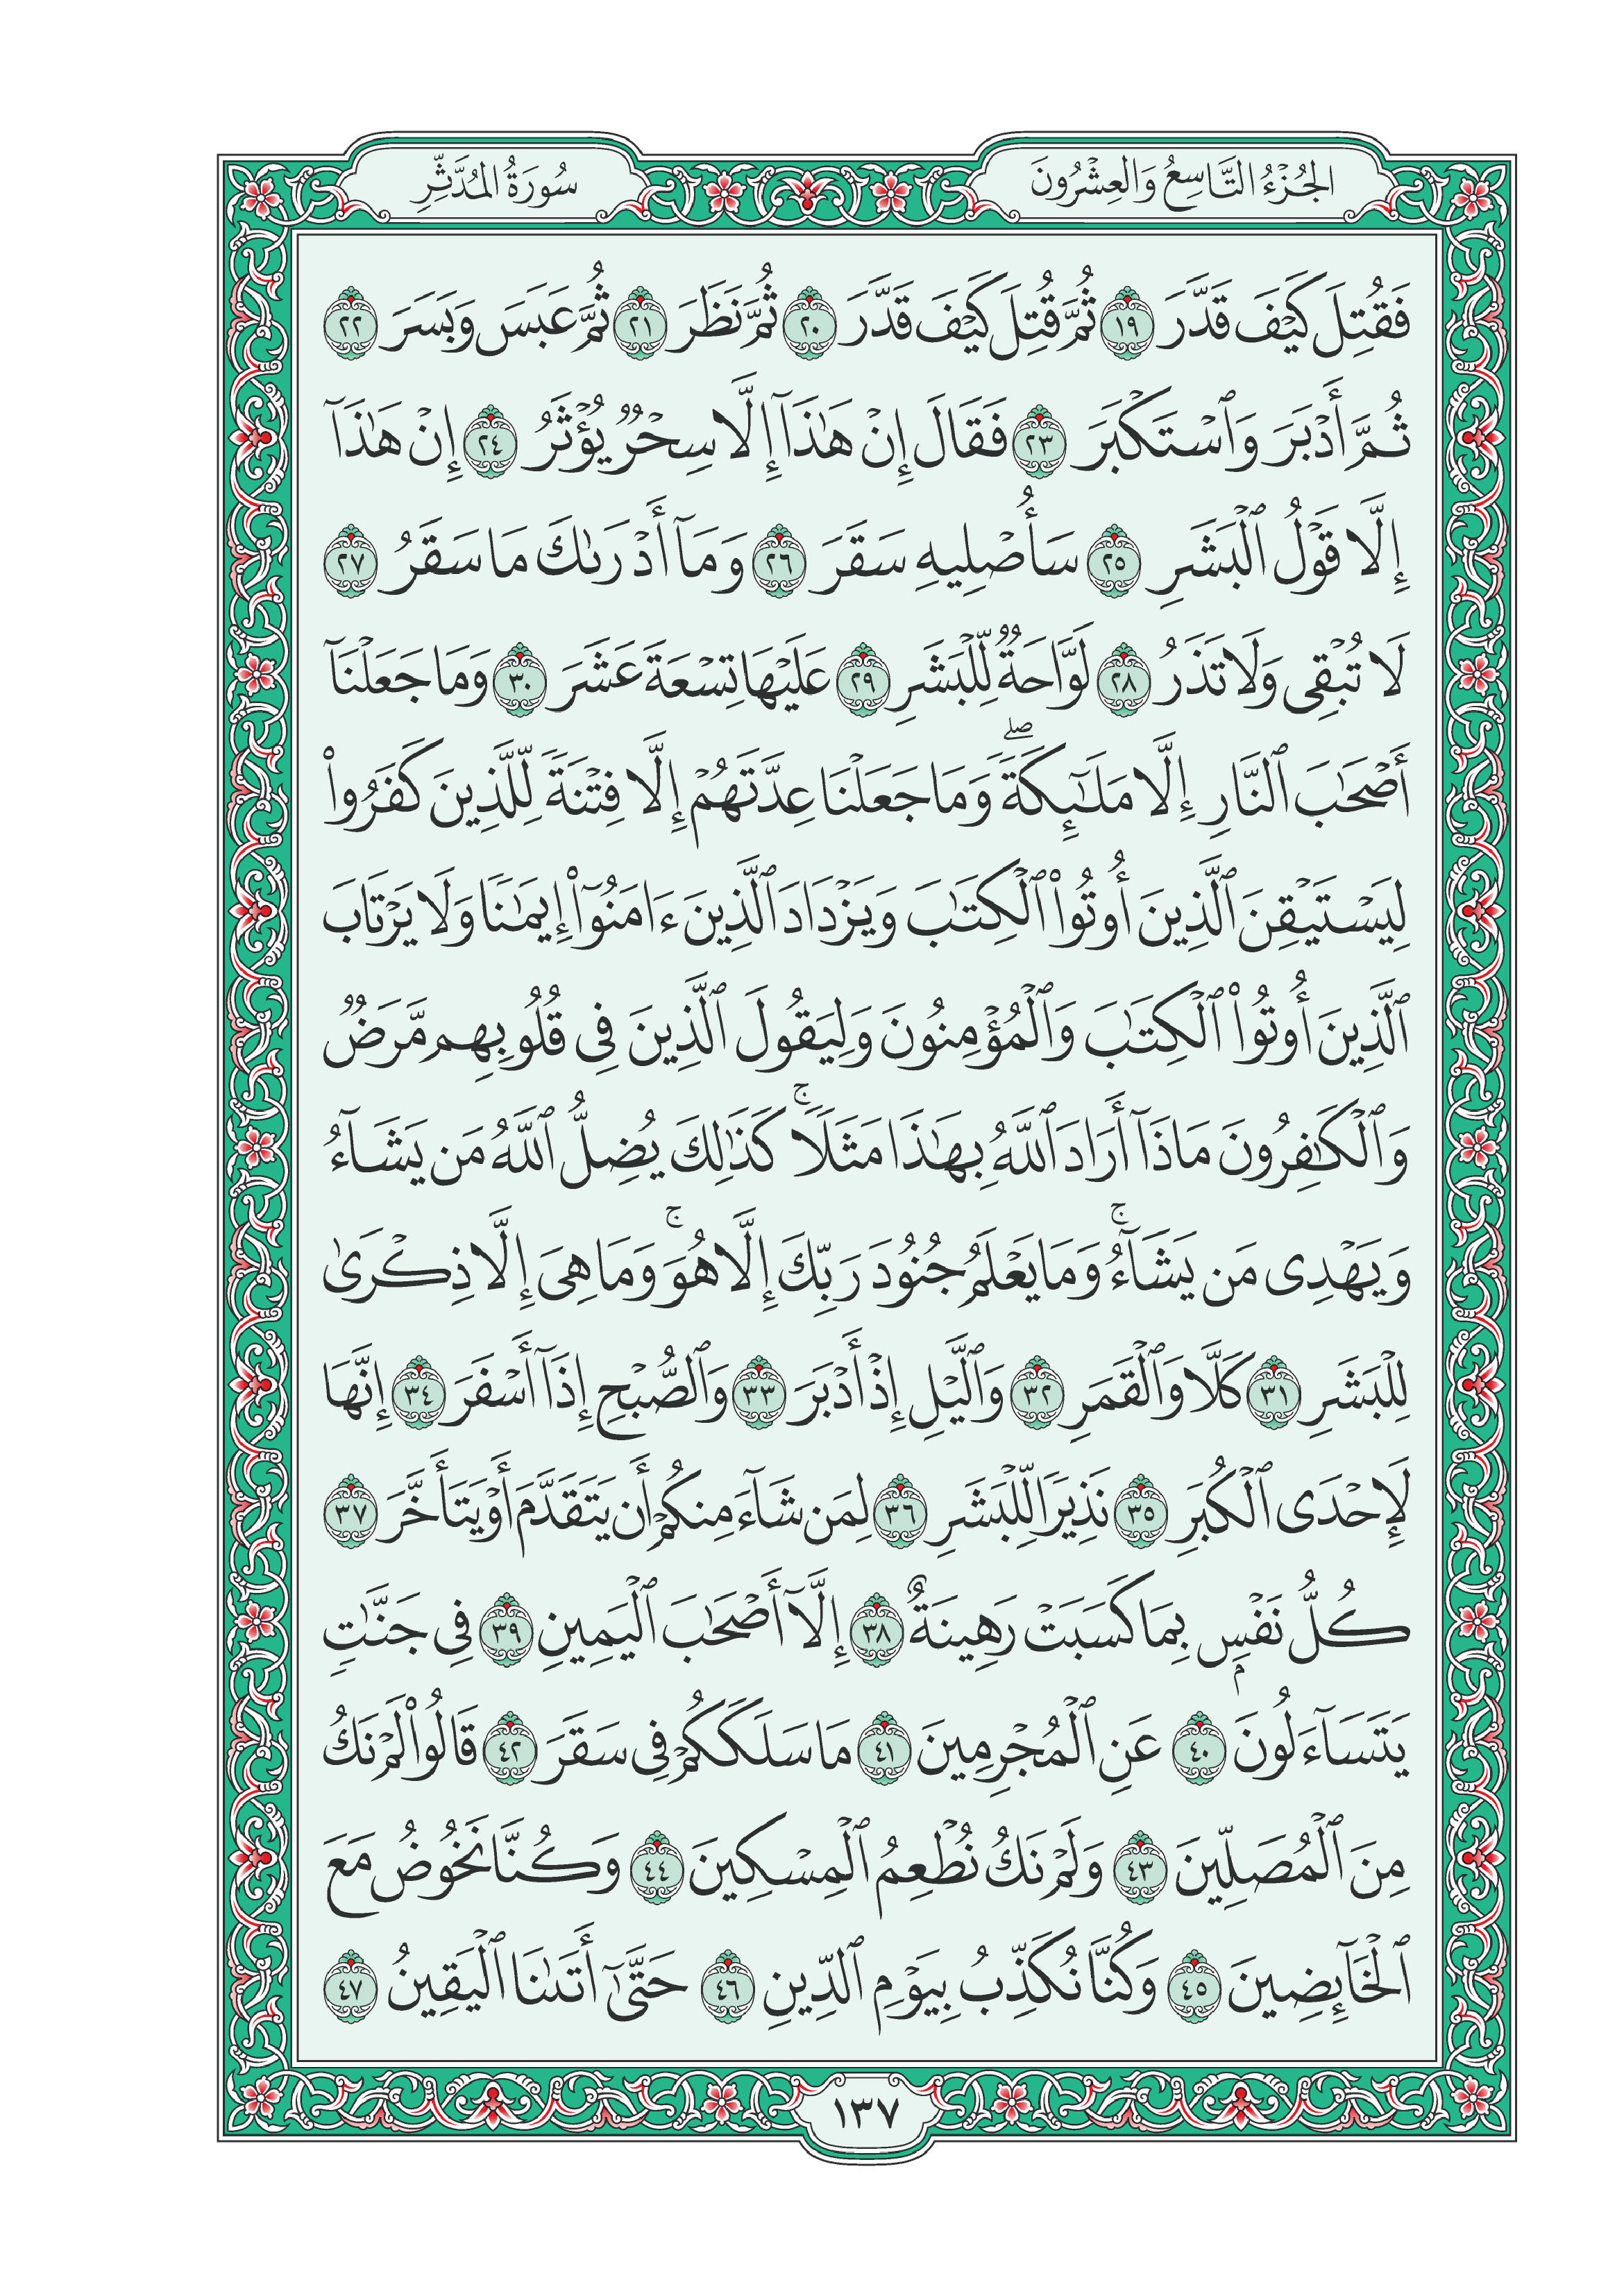 الجُزْءُ التَّاسِعُ وَالعِشْرُونَ
سُورَةُ المُدَّثِّرِ
فَقُتِلَ كَيۡفَ قَدَّرَ ١٩ ثُمَّ قُتِلَ كَيۡفَ قَدَّرَ ٢٠ ثُمَّ نَظَرَ ٢١ ثُمَّ عَبَسَ وَبَسَرَ ٢٢
ثُمَّ أَدۡبَرَ وَٱسۡتَكۡبَرَ ٢٣ فَقَالَ إِنۡ هَٰذَآ إِلَّا سِحۡرٞ يُؤۡثَرُ ٢٤ إِنۡ هَٰذَآ
إِلَّا قَوۡلُ ٱلۡبَشَرِ ٢٥ سَأُصۡلِيهِ سَقَرَ ٢٦ وَمَآ أَدۡرَىٰكَ مَا سَقَرُ ٢٧
لَا تُبۡقِي وَلَا تَذَرُ ٢٨ لَوَّاحَةٞ لِّلۡبَشَرِ ٢٩ عَلَيۡهَا تِسۡعَةَ عَشَرَ ٣٠ وَمَا جَعَلۡنَآ
أَصۡحَٰبَ ٱلنَّارِ إِلَّا مَلَٰٓئِكَةٗۖ وَمَا جَعَلۡنَا عِدَّتَهُمۡ إِلَّا فِتۡنَةٗ لِّلَّذِينَ كَفَرُواْ
لِيَسۡتَيۡقِنَ ٱلَّذِينَ أُوتُواْ ٱلۡكِتَٰبَ وَيَزۡدَادَ ٱلَّذِينَ ءَامَنُوٓاْ إِيمَٰنٗا وَلَا يَرۡتَابَ
ٱلَّذِينَ أُوتُواْ ٱلۡكِتَٰبَ وَٱلۡمُؤۡمِنُونَ وَلِيَقُولَ ٱلَّذِينَ فِي قُلُوبِهِم مَّرَضٞ
وَٱلۡكَٰفِرُونَ مَاذَآ أَرَادَ ٱللَّهُ بِهَٰذَا مَثَلٗاۚ كَذَٰلِكَ يُضِلُّ ٱللَّهُ مَن يَشَآءُ
وَيَهۡدِي مَن يَشَآءُۚ وَمَا يَعۡلَمُ جُنُودَ رَبِّكَ إِلَّا هُوَۚ وَمَا هِيَ إِلَّا ذِكۡرَىٰ
لِلۡبَشَرِ ٣١ كَلَّا وَٱلۡقَمَرِ ٣٢ وَٱلَّيۡلِ إِذۡ أَدۡبَرَ ٣٣ وَٱلصُّبۡحِ إِذَآ أَسۡفَرَ ٣٤ إِنَّهَا
لَإِحۡدَى ٱلۡكُبَرِ ٣٥ نَذِيرٗا لِّلۡبَشَرِ ٣٦ لِمَن شَآءَ مِنكُمۡ أَن يَتَقَدَّمَ أَوۡ يَتَأَخَّرَ ٣٧
كُلُّ نَفۡسِۭ بِمَا كَسَبَتۡ رَهِينَةٌ ٣٨ إِلَّآ أَصۡحَٰبَ ٱلۡيَمِينِ ٣٩ فِي جَنَّٰتٖ
يَتَسَآءَلُونَ ٤٠ عَنِ ٱلۡمُجۡرِمِينَ ٤١ مَا سَلَكَكُمۡ فِي سَقَرَ ٤٢ قَالُواْ لَمۡ نَكُ
مِنَ ٱلۡمُصَلِّينَ ٤٣ وَلَمۡ نَكُ نُطۡعِمُ ٱلۡمِسۡكِينَ ٤٤ وَكُنَّا نَخُوضُ مَعَ
ٱلۡخَآئِضِينَ ٤٥ وَكُنَّا نُكَذِّبُ بِيَوۡمِ ٱلدِّينِ ٤٦ حَتَّىٰٓ أَتَىٰنَا ٱلۡيَقِينُ ٤٧
١٣٧